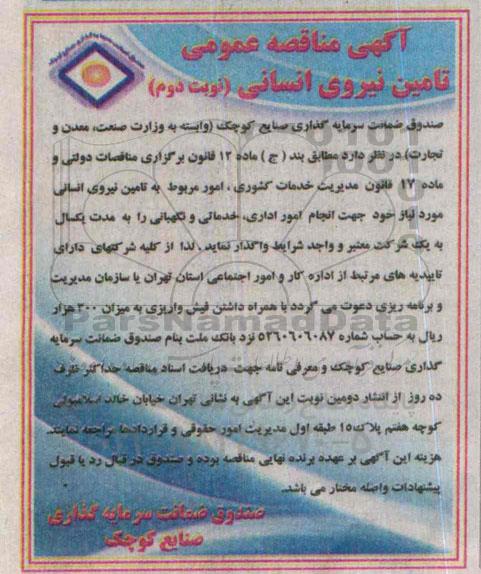 آگهی مناقصه عمومی
تامین نیروی انسانی (نوبت دوم)
صندوق ضمانت سرمایه گذاری صنایع کوچک (وابسته به وزارت صنعت، معدن و
تجارت) در نظر دارد مطابق بند ( ج ) ماده ۱۲ قانون برگزاری مناقصات دولتی و
ماده ۱۷ قانون مدیریت خدمات کشوری ، امور مربوط به تامین نیروی انسانی
مورد نیاز خود جهت انجام امور اداری، خدماتی و نگهبانی را به مدت یکسال
به یک شرکت معتبر و واجد شرایط واگذار نماید . لذا از کلیه شرکتهای دارای
تاییدیه های مرتبط از اداره کار و امور اجتماعی استان تهران یا سازمان مدیریت
و برنامه ریزی دعوت می گردد با همراه داشتن فیش واریزی به میزان ۳۰۰ هزار
ریال به حساب شماره ۵۲۶۰۶۰۶۰۸۷ نزد بانک ملت بنام صندوق ضمانت سرمایه
گذاری صنایع کوچک و معرفی نامه جهت دریافت اسناد مناقصه حداکثر ظرف
ده روز از انتشار دومین نوبت این آگهی به نشانی تهران خیابان خالد اسلامبولی
کوچه هفتم پلاک۱۵ طبقه اول مدیریت امور حقوقی و قراردادها مراجعه نمایند.
هزینه این آگهی بر عهده برنده نهایی مناقصه بوده و صندوق در قبال رد یا قبول
پیشنهادات واصله مختار می باشد.
صندوق ضمانت سرمایه گذاری
صنایع کوچک
ParsNamadData